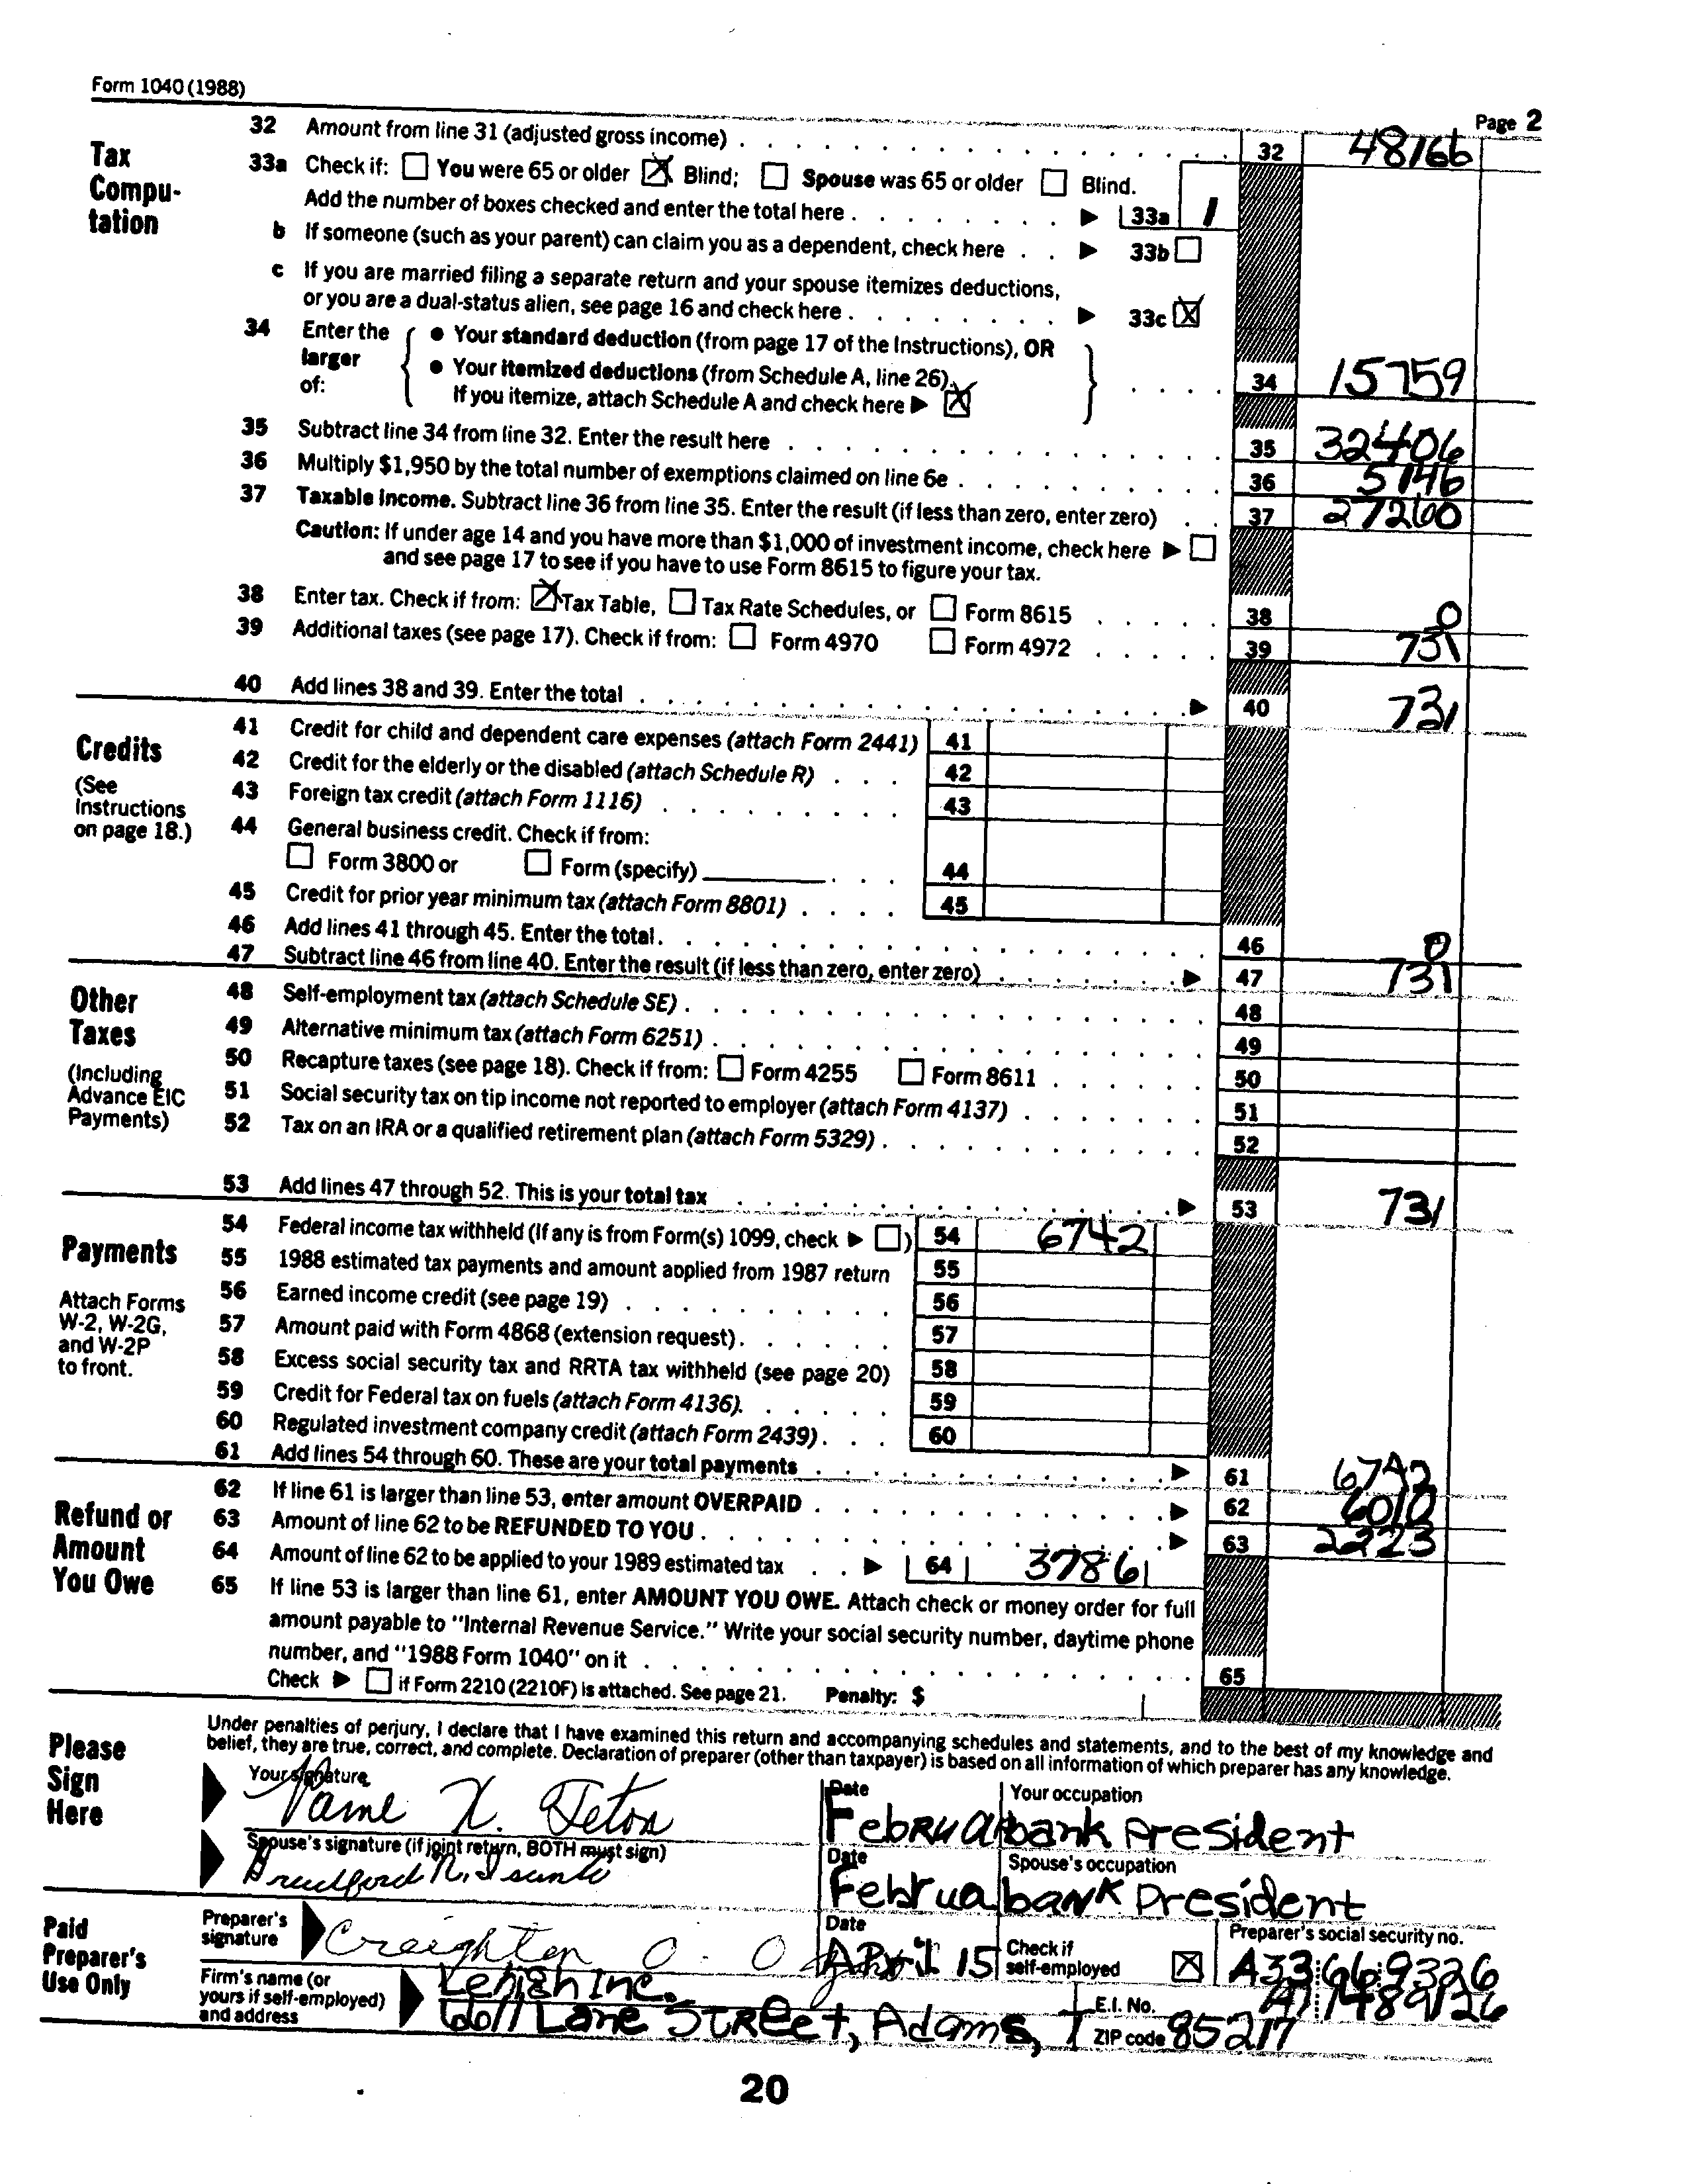 Form 1040 (1988)
Page 2
Tax Compu-tation
32 Amount from line 31 (adjusted gross income) 32 48166
33a Check if: You were 65 or older ☒ Blind; Spouse was 65 or older Blind.
Add the number of boxes checked and enter the total here 33a 1
b If someone (such as your parent) can claim you as a dependent, check here 33b
c If you are married filing a separate return and your spouse itemizes deductions,
or you are a dual-status alien, see page 16 and check here 33c ☒
34 Enter the larger of:
• Your standard deduction (from page 17 of the Instructions), OR
• Your itemized deductions (from Schedule A, line 26).
If you itemize, attach Schedule A and check here ► ☒ 34 15759
35 Subtract line 34 from line 32. Enter the result here 35 32406
36 Multiply $1,950 by the total number of exemptions claimed on line 6e 36 5146
37 Taxable income. Subtract line 36 from line 35. Enter the result (if less than zero, enter zero) 37 27260
Caution: If under age 14 and you have more than $1,000 of investment income, check here ►
and see page 17 to see if you have to use Form 8615 to figure your tax.
38 Enter tax. Check if from: ☒ Tax Table, Tax Rate Schedules, or Form 8615 38 0
39 Additional taxes (see page 17). Check if from: Form 4970 Form 4972 39 731
40 Add lines 38 and 39. Enter the total ► 40 731
Credits
(See Instructions on page 18.)
41 Credit for child and dependent care expenses (attach Form 2441) 41
42 Credit for the elderly or the disabled (attach Schedule R) 42
43 Foreign tax credit (attach Form 1116) 43
44 General business credit. Check if from:
Form 3800 or Form (specify) 44
45 Credit for prior year minimum tax (attach Form 8801) 45
46 Add lines 41 through 45. Enter the total. 46 0
47 Subtract line 46 from line 40. Enter the result (if less than zero, enter zero) ► 47 731
Other Taxes
(Including Advance EIC Payments)
48 Self-employment tax (attach Schedule SE) 48
49 Alternative minimum tax (attach Form 6251) 49
50 Recapture taxes (see page 18). Check if from: Form 4255 Form 8611 50
51 Social security tax on tip income not reported to employer (attach Form 4137) 51
52 Tax on an IRA or a qualified retirement plan (attach Form 5329) 52
53 Add lines 47 through 52. This is your total tax ► 53 731
Payments
Attach Forms W-2, W-2G, and W-2P to front.
54 Federal income tax withheld (If any is from Form(s) 1099, check ► ) 54 6742
55 1988 estimated tax payments and amount applied from 1987 return 55
56 Earned income credit (see page 19) 56
57 Amount paid with Form 4868 (extension request) 57
58 Excess social security tax and RRTA tax withheld (see page 20) 58
59 Credit for Federal tax on fuels (attach Form 4136). 59
60 Regulated investment company credit (attach Form 2439) 60
61 Add lines 54 through 60. These are your total payments ► 61 6742
Refund or Amount You Owe
62 If line 61 is larger than line 53, enter amount OVERPAID ► 62 6010
63 Amount of line 62 to be REFUNDED TO YOU ► 63 2223
64 Amount of line 62 to be applied to your 1989 estimated tax ► 64 3786
65 If line 53 is larger than line 61, enter AMOUNT YOU OWE. Attach check or money order for full
amount payable to "Internal Revenue Service." Write your social security number, daytime phone
number, and "1988 Form 1040" on it 65
Check ► if Form 2210 (2210F) is attached. See page 21. Penalty: $
Please Sign Here
Under penalties of perjury, I declare that I have examined this return and accompanying schedules and statements, and to the best of my knowledge and
belief, they are true, correct, and complete. Declaration of preparer (other than taxpayer) is based on all information of which preparer has any knowledge.
Your signature Date Your occupation
X. Teton Februa bank president
Spouse's signature (if joint return, BOTH must sign) Date Spouse's occupation
Februa bank president
Paid Preparer's Use Only
Preparer's signature Creighton O. Date April 15 Check if self-employed ☒ Preparer's social security no. A33:66:9326
Firm's name (or yours if self-employed) and address Lehigh Inc. E.I. No. A1:1489126
6011 Lane Street, Adams, ZIP code 85217
20